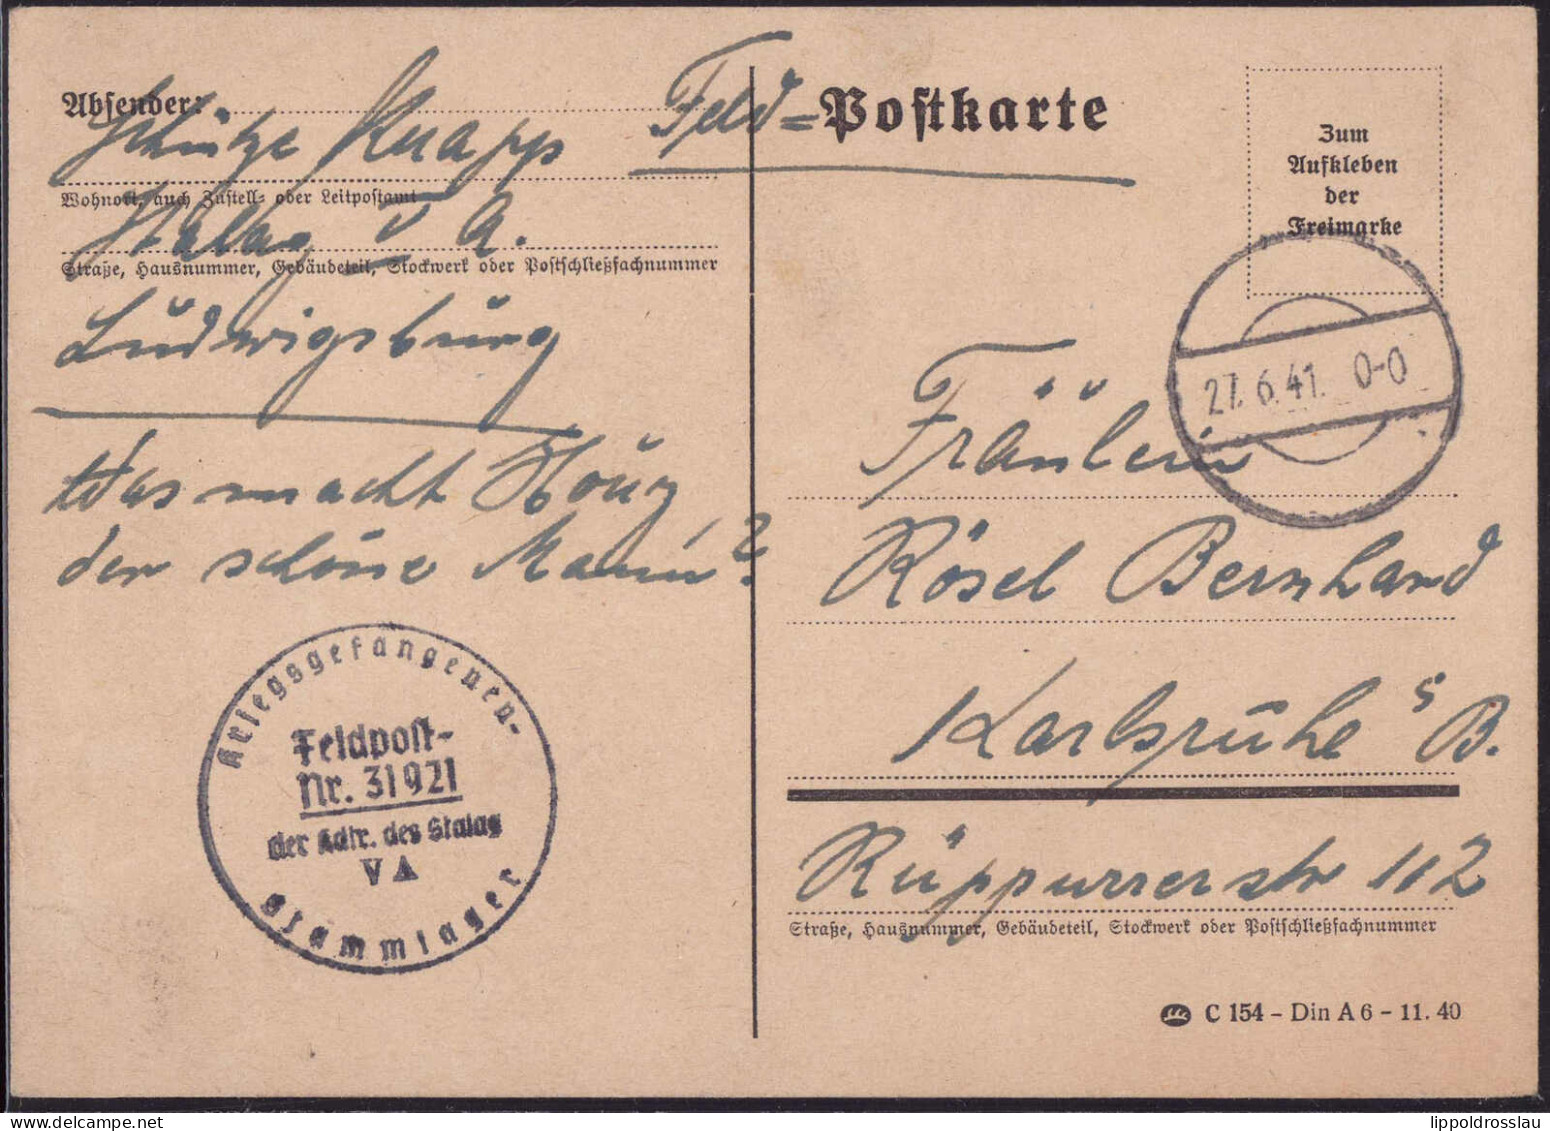 Absender:
Schütze Knapp
Wohnort, auch Zustell- oder Leitpostamt
Stalag V A.
Straße, Hausnummer, Gebäudeteil, Stockwerk oder Postschließfachnummer
Ludwigsburg
Was macht
der schöne Mann?
Kriegsgefangenen-
Feldpost-
Nr. 31921
der Kdtr. des Stalag
V A
Stammlager
Feld=Postkarte
Zum
Aufkleben
der
Freimarke
27.6.41. 0-0
Fräulein
Rösel Bernhard
Karlsruhe s B.
Rüppurrerstr 112
Straße, Hausnummer, Gebäudeteil, Stockwerk oder Postschließfachnummer
C 154 - Din A 6 - 11. 40
lippoldrosslau